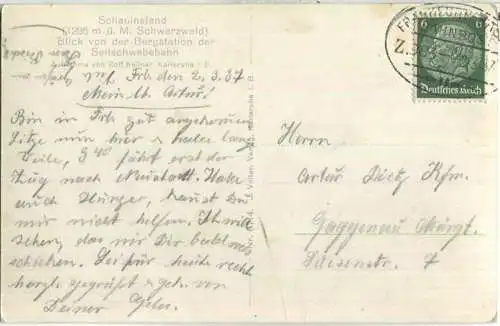 Schauinsland
(1286 m ü. M. Schwarzwald)
Blick von der Bergstation der
Seilschwebebahn
Frb. den 2.3.37
Mein lb. Artur!
Bin in Frb. gut angekommen
Sitze nun hier & habe lang-
weile, 3 40 fährt erst der
Zug nach Neustadt. Habe
auch Hunger, kannst Du
mir nicht helfen. Ich will
sehen, das wir Dir bald
schicken. Sei für heute recht
herzl. gegrüßt & gek. von
Deiner
Herrn
Artur Dietz Kfm.
Gaggenau Murgt.
Luisenstr. 7
6
6
Deutsches Reich